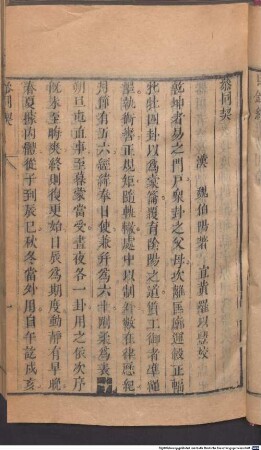 參同契
漢 魏伯陽著 宜黃羅以
乾坤者易之門戶衆卦之父母坎離匡廓運轂正軸
牝牡四卦以爲橐籥覆冒陰陽之道猶工御者準繩
墨執銜轡正規矩隨軌轍處中以制外數在律曆紀
月節有五六經緯奉日使兼幷爲六十剛柔有表裏
朔旦屯直事至暮蒙當受晝夜各一卦用之依次序
旣未至晦爽終則復更始日辰爲期度動靜有早晚
春夏據內體從子到辰巳秋冬當外用自午訖戌亥
參同契